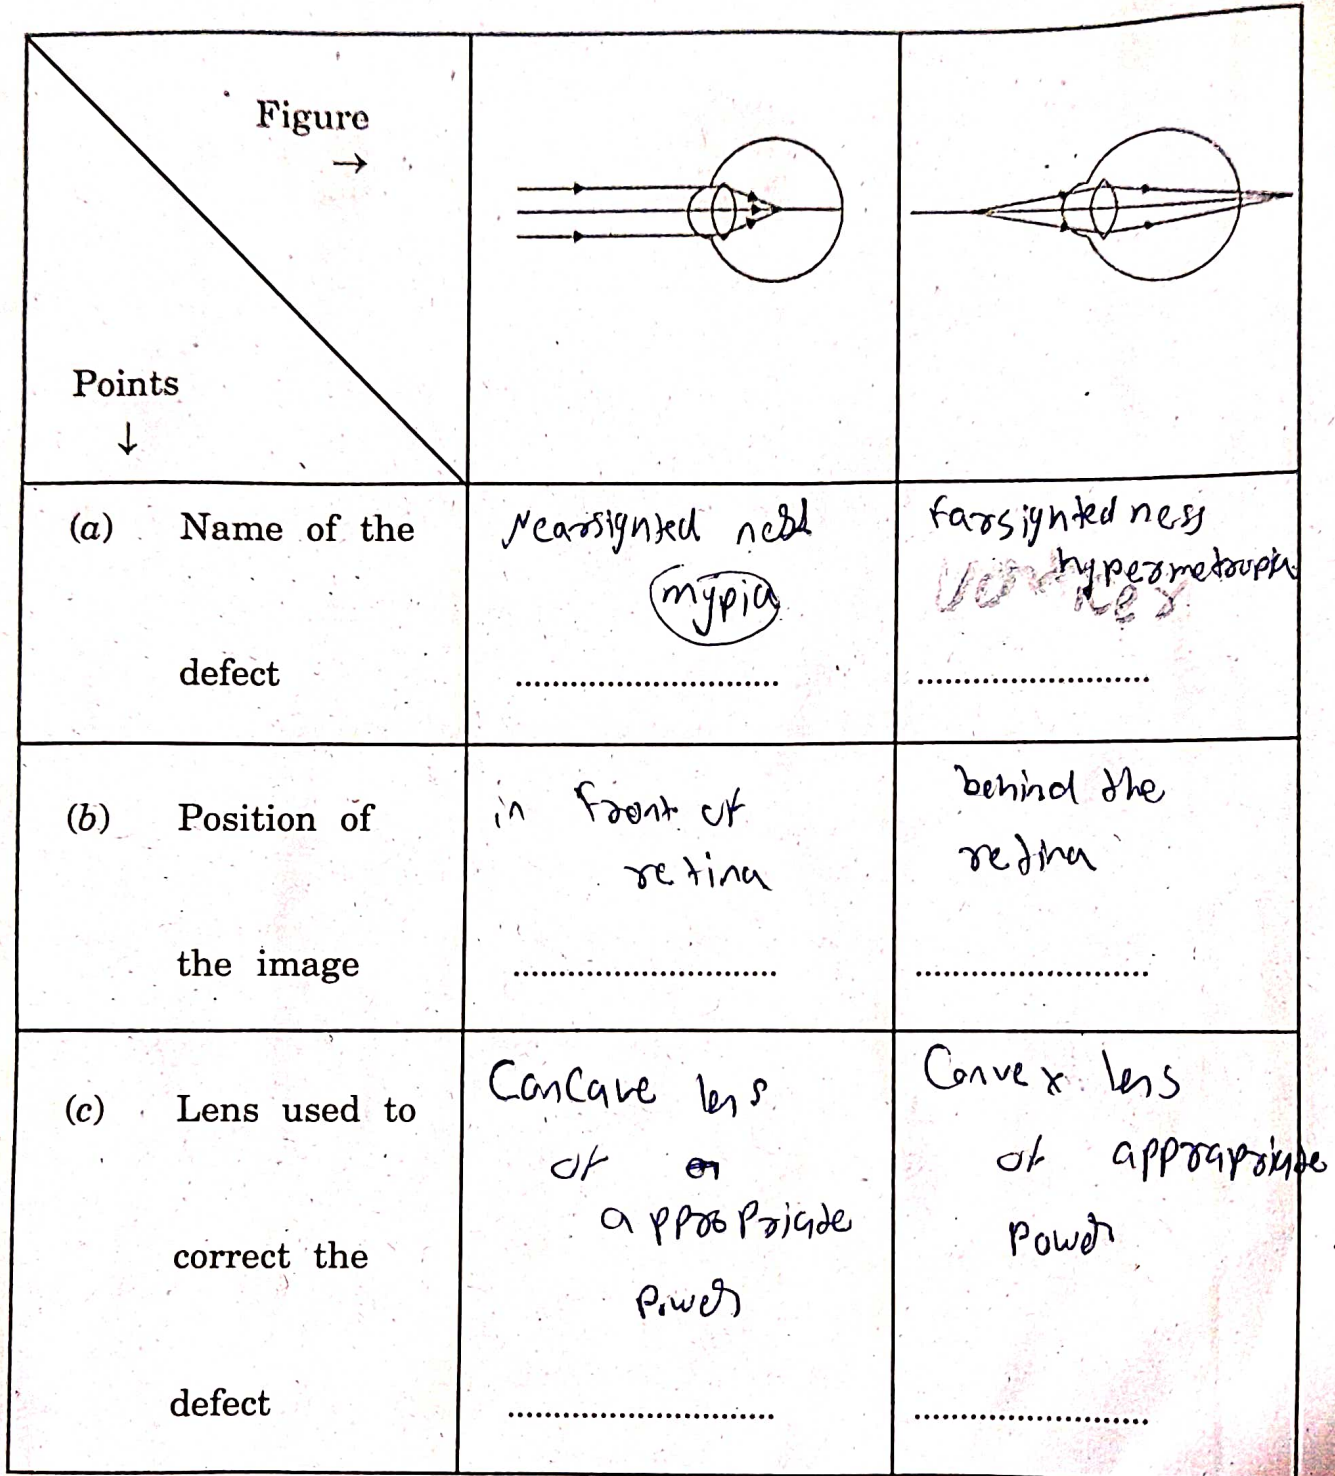 Figure
→
Points
↓
(a) Name of the
defect
Nearsignted ness
mypia
..............................
farsignted ness
hypermetropia
..............................
(b) Position of
the image
in front of
retina
..............................
behind the
retina
..............................
(c) Lens used to
correct the
defect
Concave lens
of
appropriate
power
..............................
Convex lens
of appropriate
power
..............................